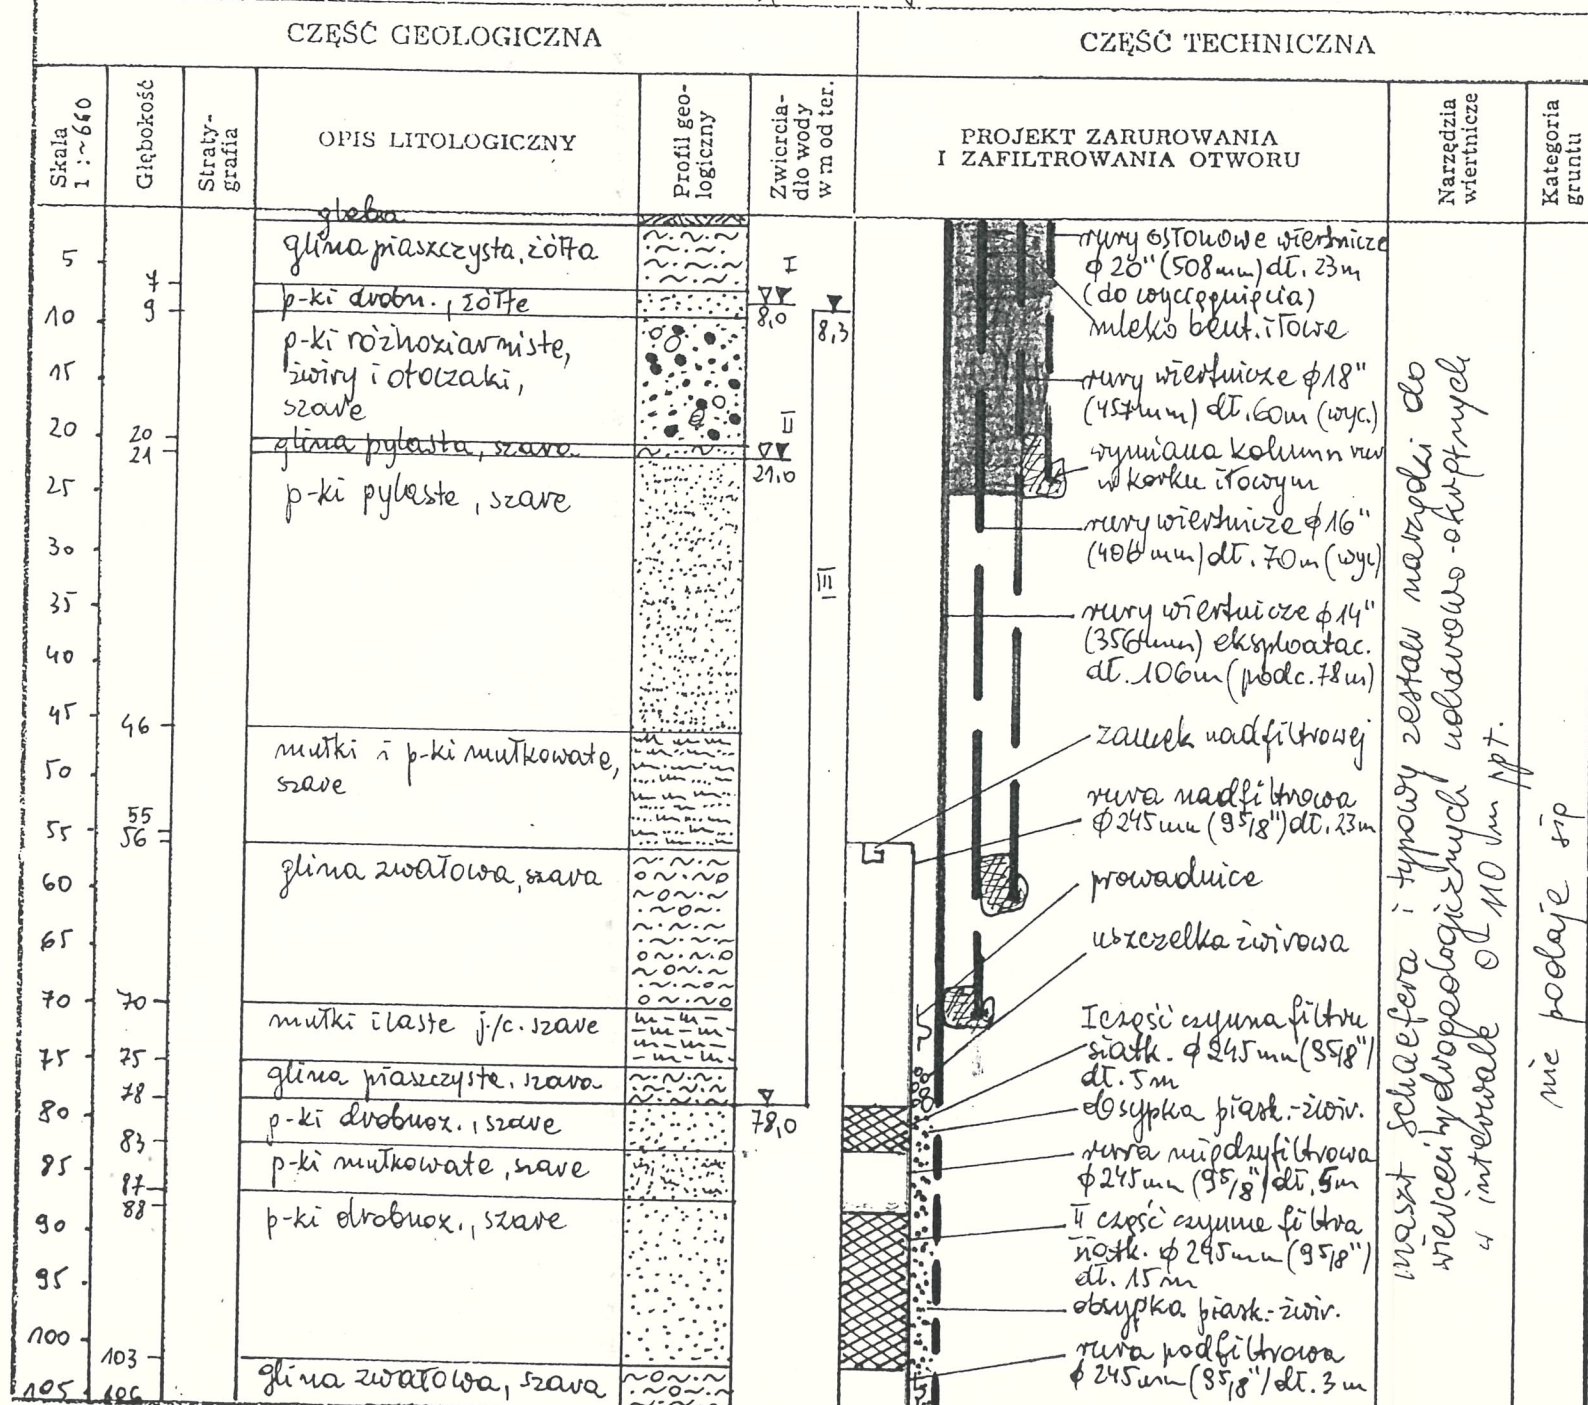 CZĘŚĆ GEOLOGICZNA
CZĘŚĆ TECHNICZNA
Skala
1:~660
Głębokość
Straty-
grafia
OPIS LITOLOGICZNY
Profil geo-
logiczny
Zwiercia-
dło wody
w m od ter.
PROJEKT ZARUROWANIA
I ZAFILTROWANIA OTWORU
Narzędzia
wiertnicze
Kategoria
gruntu
5
10
15
20
25
30
35
40
45
50
55
60
65
70
75
80
85
90
95
100
105
7
9
20
21
46
55
56
70
75
78
83
87
88
103
106
gleba
glina piaszczysta, żółta
p-ki drobn., żółte
p-ki różnoziarniste,
żwiry i otoczaki,
szare
glina pylasta, szara
p-ki pylaste, szare
mułki i p-ki mułkowate,
szare
glina zwałowa, szara
mułki ilaste j./c. szare
glina piaszczysta, szara
p-ki drobnoz., szare
p-ki mułkowate, szare
p-ki drobnoz., szare
glina zwałowa, szara
I
8,0
8,3
II
21,0
III
78,0
rury osłonowe wiertnicze
φ 20" (508mm) dł. 23m
(do wyciągnięcia)
mleko bent. iłowe
rury wiertnicze φ18"
(457mm) dł. 60m (wyc.)
wymiana kolumn rur
w korku iłowym
rury wiertnicze φ16"
(406 mm) dł. 70m (wyc)
rury wiertnicze φ14"
(356mm) eksploatac.
dł. 106m (podc. 78m)
zamek nadfiltrowej
rura nadfiltrowa
φ245mm (9 5/8") dł. 23m
prowadnice
uszczelka żwirowa
I część czynna filtru
siatk. φ245mm (9 5/8")
dł. 5m
obsypka piask.-żwir.
rura międzyfiltrowa
φ245mm (9 5/8") dł. 5m
II część czynna filtra
siatk. φ245mm (9 5/8")
dł. 15m
obsypka piask.-żwir.
rura podfiltrowa
φ245mm (9 5/8") dł. 3m
maszt Schaefera i typowy zestaw narzędzi do
wierceń hydrogeologicznych udarowo-okrętnych
w interwale 0-110 m ppt.
nie podaje się